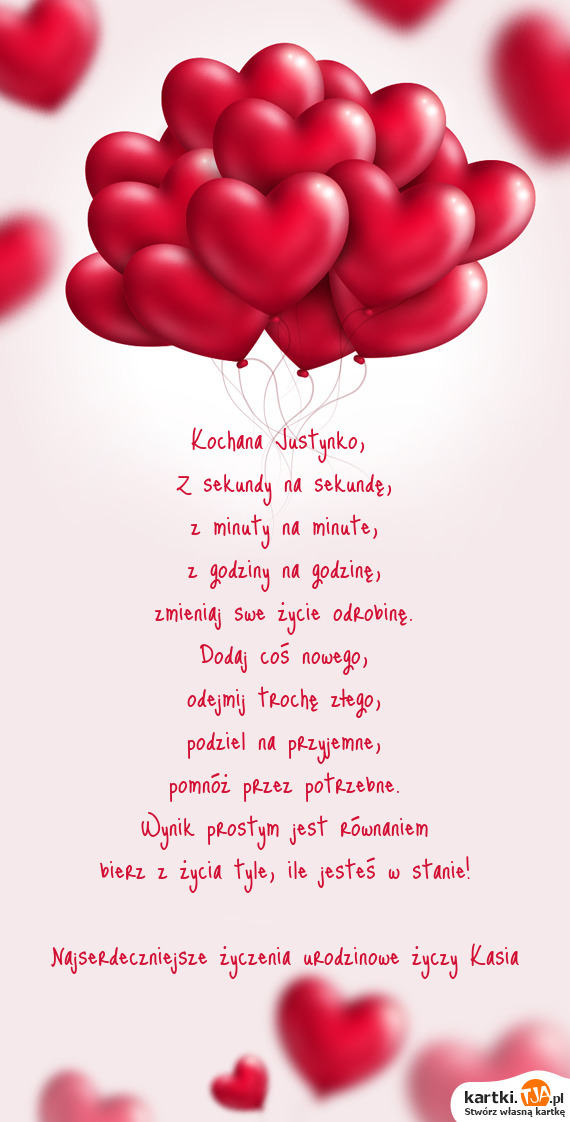 Kochana Justynko,
Z sekundy na sekundę,
z minuty na minute,
z godziny na godzinę,
zmieniaj swe życie odrobinę.
Dodaj coś nowego,
odejmij trochę złego,
podziel na przyjemne,
pomnóż przez potrzebne.
Wynik prostym jest równaniem
bierz z życia tyle, ile jesteś w stanie!
Najserdeczniejsze życzenia urodzinowe życzy Kasia
kartki.TJA.pl
Stwórz własną kartkę